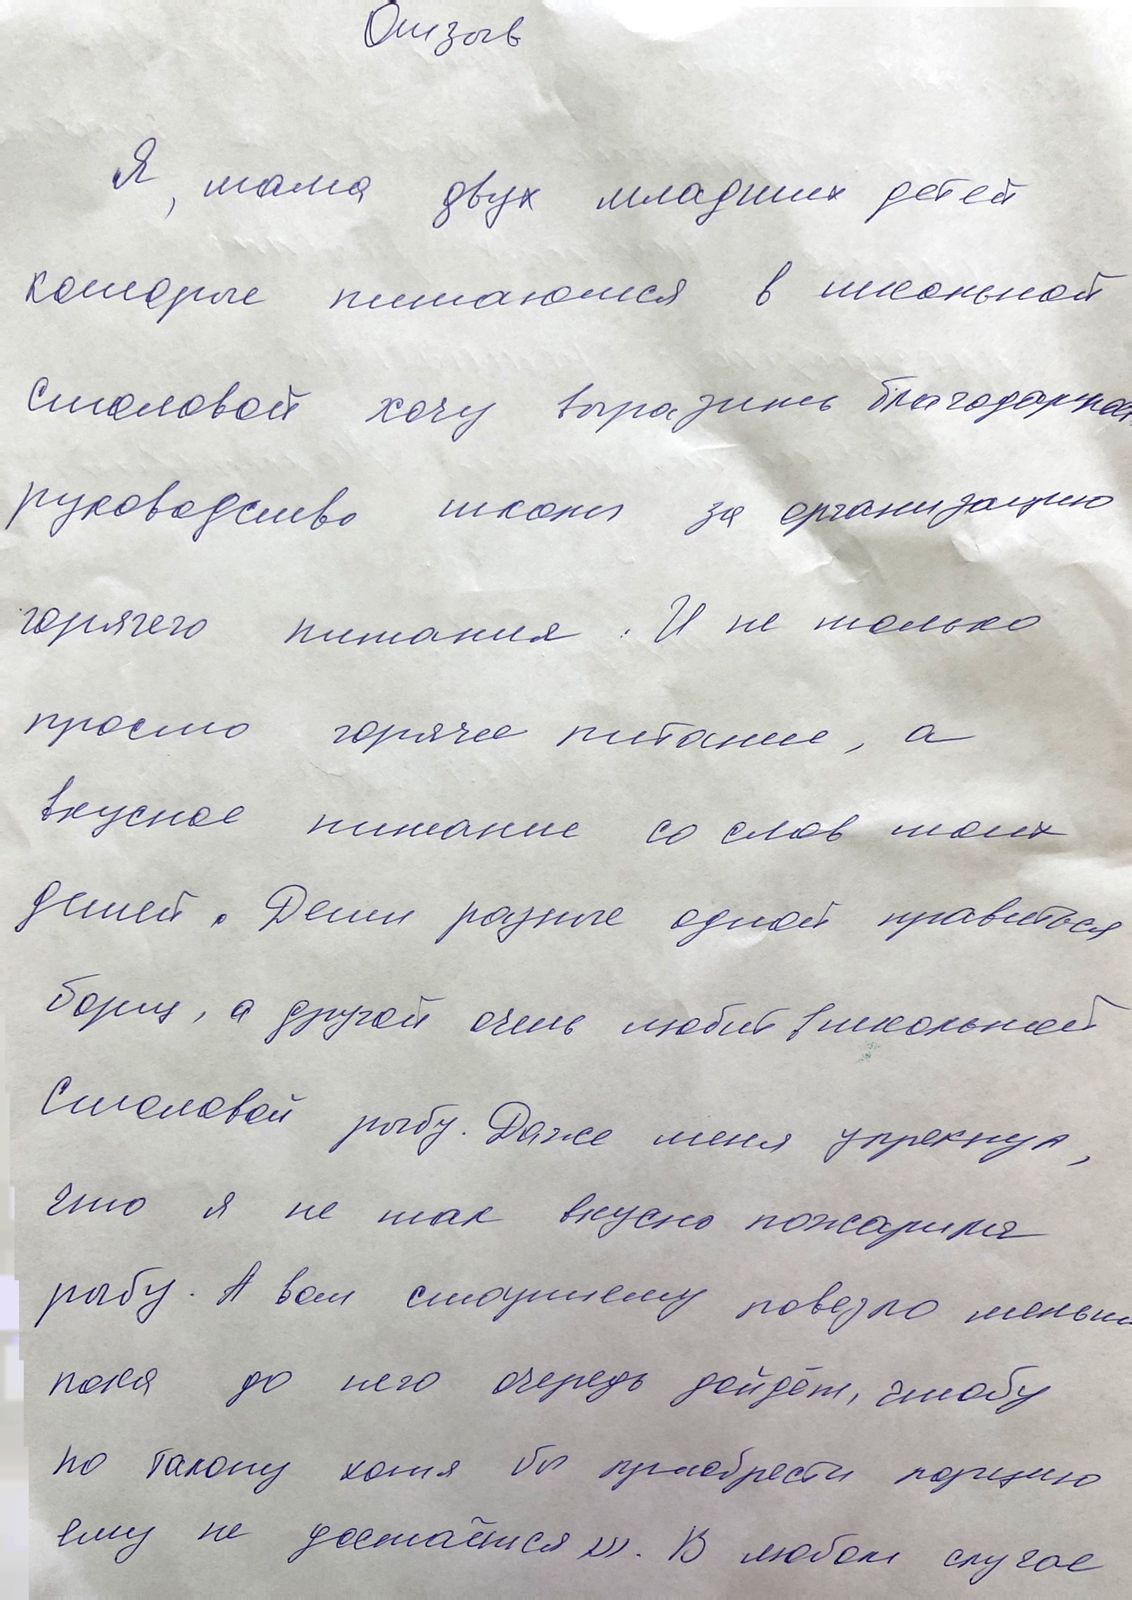 Отзыв
Я, мама двух младших детей
которые питаются в школьной
столовой хочу выразить благодарност
руководство школы за организацию
горячего питания. И не только
просто горячее питание, а
вкусное питание со слов моих
детей. Дети разные одной нравиться
борщ, а другой очень любит в школьной
столовой рыбу. Даже меня упрекнул,
что я не так вкусно пожарила
рыбу. А вот старшему повезло меньше
пока до него очередь дойдёт, чтобы
по талону хотя бы приобрести порцию
ему не достаётся ... В любом случае